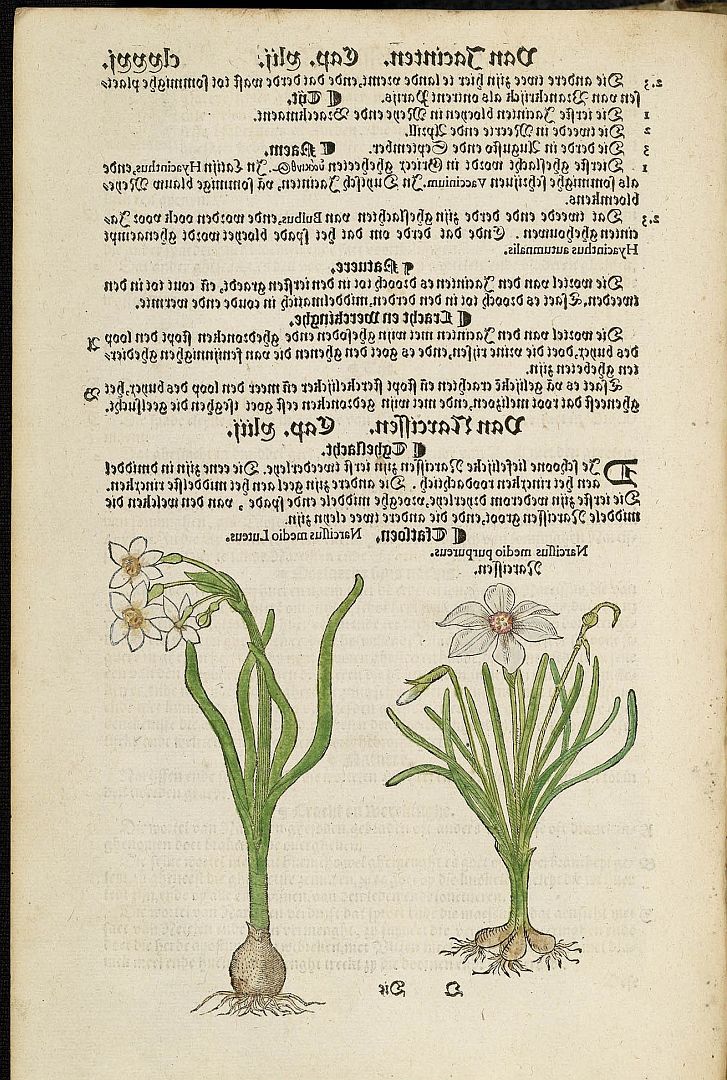 Van Jacinten. Cap. xlij. clxxxj.
2.3 Die andere twee zijn hier te lande vremt, ende dat derde wast tot sommighe plaet-
sen van Vranckrijck als ontrent Parijs. ¶ Tijt.
1 Die ierste Jacinten bloeyen in Meye ende Braeckmaent.
2 Die tweede in Meerte ende Aprill.
3 Die derde in Augusto ende September. ¶ Naem.
1 Dierste gheslacht wordt in Griecx gheheeten ὑάκινθος. In Latijn Hyacinthus, ende
als sommighe schrijuen Vaccinium. In Duytsch Jacinten, vā sommige blauw Meye-
bloemkens.
2.3 Dat tweede ende derde zijn gheslachten van Bulbus, ende worden oock voor Ja-
cinten ghehouwen. Ende dat derde om dat het spade bloeyet wordt ghenaempt
Hyacinthus autumnalis.
¶ Natuere.
Die wortel van den Jacinten es droooch tot in den iersten graedt, eñ cout tot in den
tweeden, Tsaet es droooch tot in den derden, middelmatich in coude ende wermte.
¶ Cracht en Werckinghe.
A Die wortel van den Jacinten met wijn ghesoden ende ghedroncken stopt den loop
des buycx, doet die urine rijsen, ende es goet den ghenen die van fenijnnighen ghedier-
ten ghebeten zijn.
B Tsaet es vā gelijcke crachten eñ stopt sterckelijcker eñ meer den loop des buycx, het
gheneest dat root melizoen, ende met wijn gedroncken eest goet teghen die geelsucht.
Van Narcissen. Cap. xliij.
¶ Tgheslacht.
Die schoone liefelijcke Narcissen zijn ierst tweederleye. Die eene zijn in dmiddel
aen het rincxken roodachtich. Die andere zijn geel aen het middelste rincxken.
Die ierste zijn wederom dryerleye, vroeghe middele ende spade, van den welcken die
middele Narcissen groot, ende die andere twee cleyn zijn.
¶ Tfatsoen. Narcissus medio Luteus.
Narcissus medio purpureus.
Narcissen.
Q Die